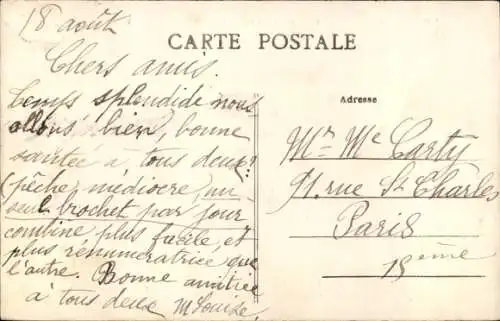 18 août
CARTE POSTALE
Chers amis.
Temps splendide nous
allons bien, bonne
santée à tous deux!
(pêche médiocre) un
seul brochet par jour
combine plus facile, et
plus rénumératrice que
l'autre. Bonne amitiée
à tous deux M Louise.
Adresse
Mr Mc Carty
91. rue St Charles
Paris
15ème